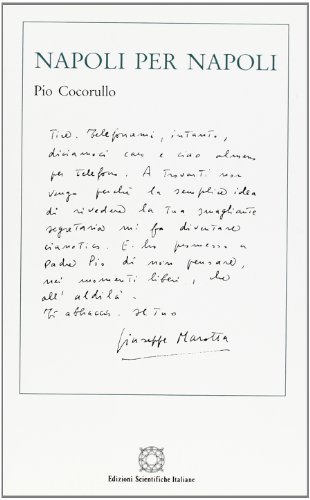 NAPOLI PER NAPOLI
Pio Cocorullo
Telefonami, intanto,
diciamoci caro e ciao almeno
per telefono. A trovarti non
vengo perché la semplice idea
di rivedere la tua smagliante
segretaria mi fa diventare
cianotico. E ho promesso a
Padre Pio di non pensare,
nei momenti liberi, che
all' aldilà.
Ti abbraccio. Il tuo
Giuseppe Marotta
Edizioni Scientifiche Italiane